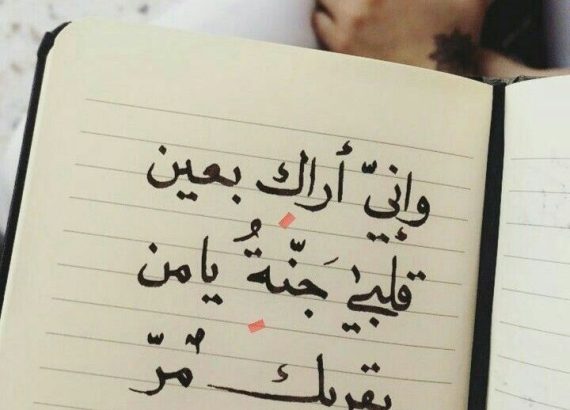 وإنيّ أراك بعين
قلبيْ جَنّةُ يامن
بقربك مُرّ